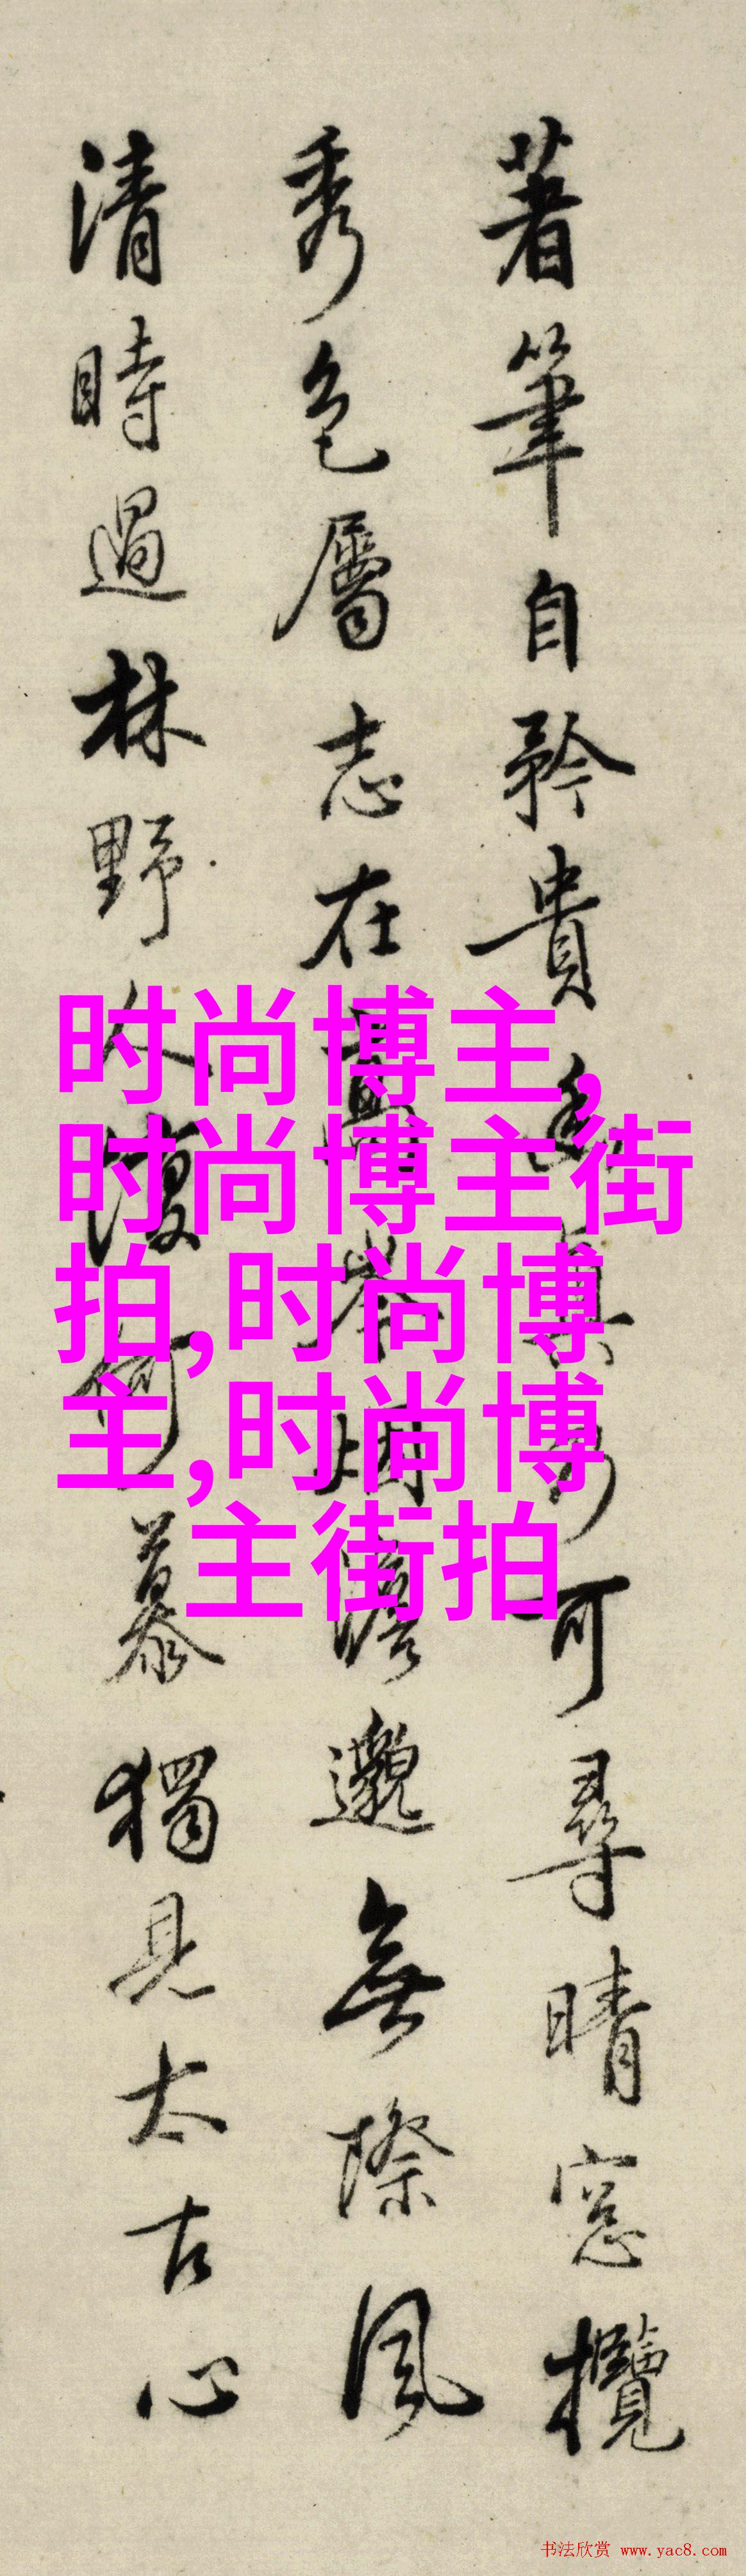 著筆自矜貴 可尋晴窓攬
秀色屬志在 邈無際風
清時過林野人復何慕獨見太古心
时尚博主,
时尚博主街
拍,时尚博
主,时尚博
主街拍
书法欣赏 www.yac8.com